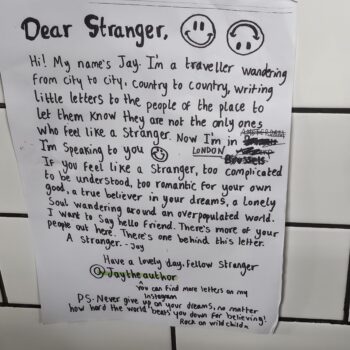 Dear Stranger,
Hi! My name's Jay. I'm a traveller wandering
from city to city, country to country, writing
little letters to the people of the place to
let them know they are not the only ones
who feel like a Stranger. Now I'm in
AMSTERDAM
I'm speaking to you LONDON
Brussels
If you feel like a Stranger, too complicated
to be understood, too romantic for your own
good, a true believer in your dreams, a lonely
Soul wandering around an overpopulated world.
I want to Say hello friend. There's more of your
people out here. There's one behind this letter.
A stranger. - Jay
Have a lovely day, Fellow Stranger
@Jaytheauthor
You can find more letters on my
Instagram
PS. Never give up on your dreams, no matter
how hard the world beats you down for believing!
Rock on wild child